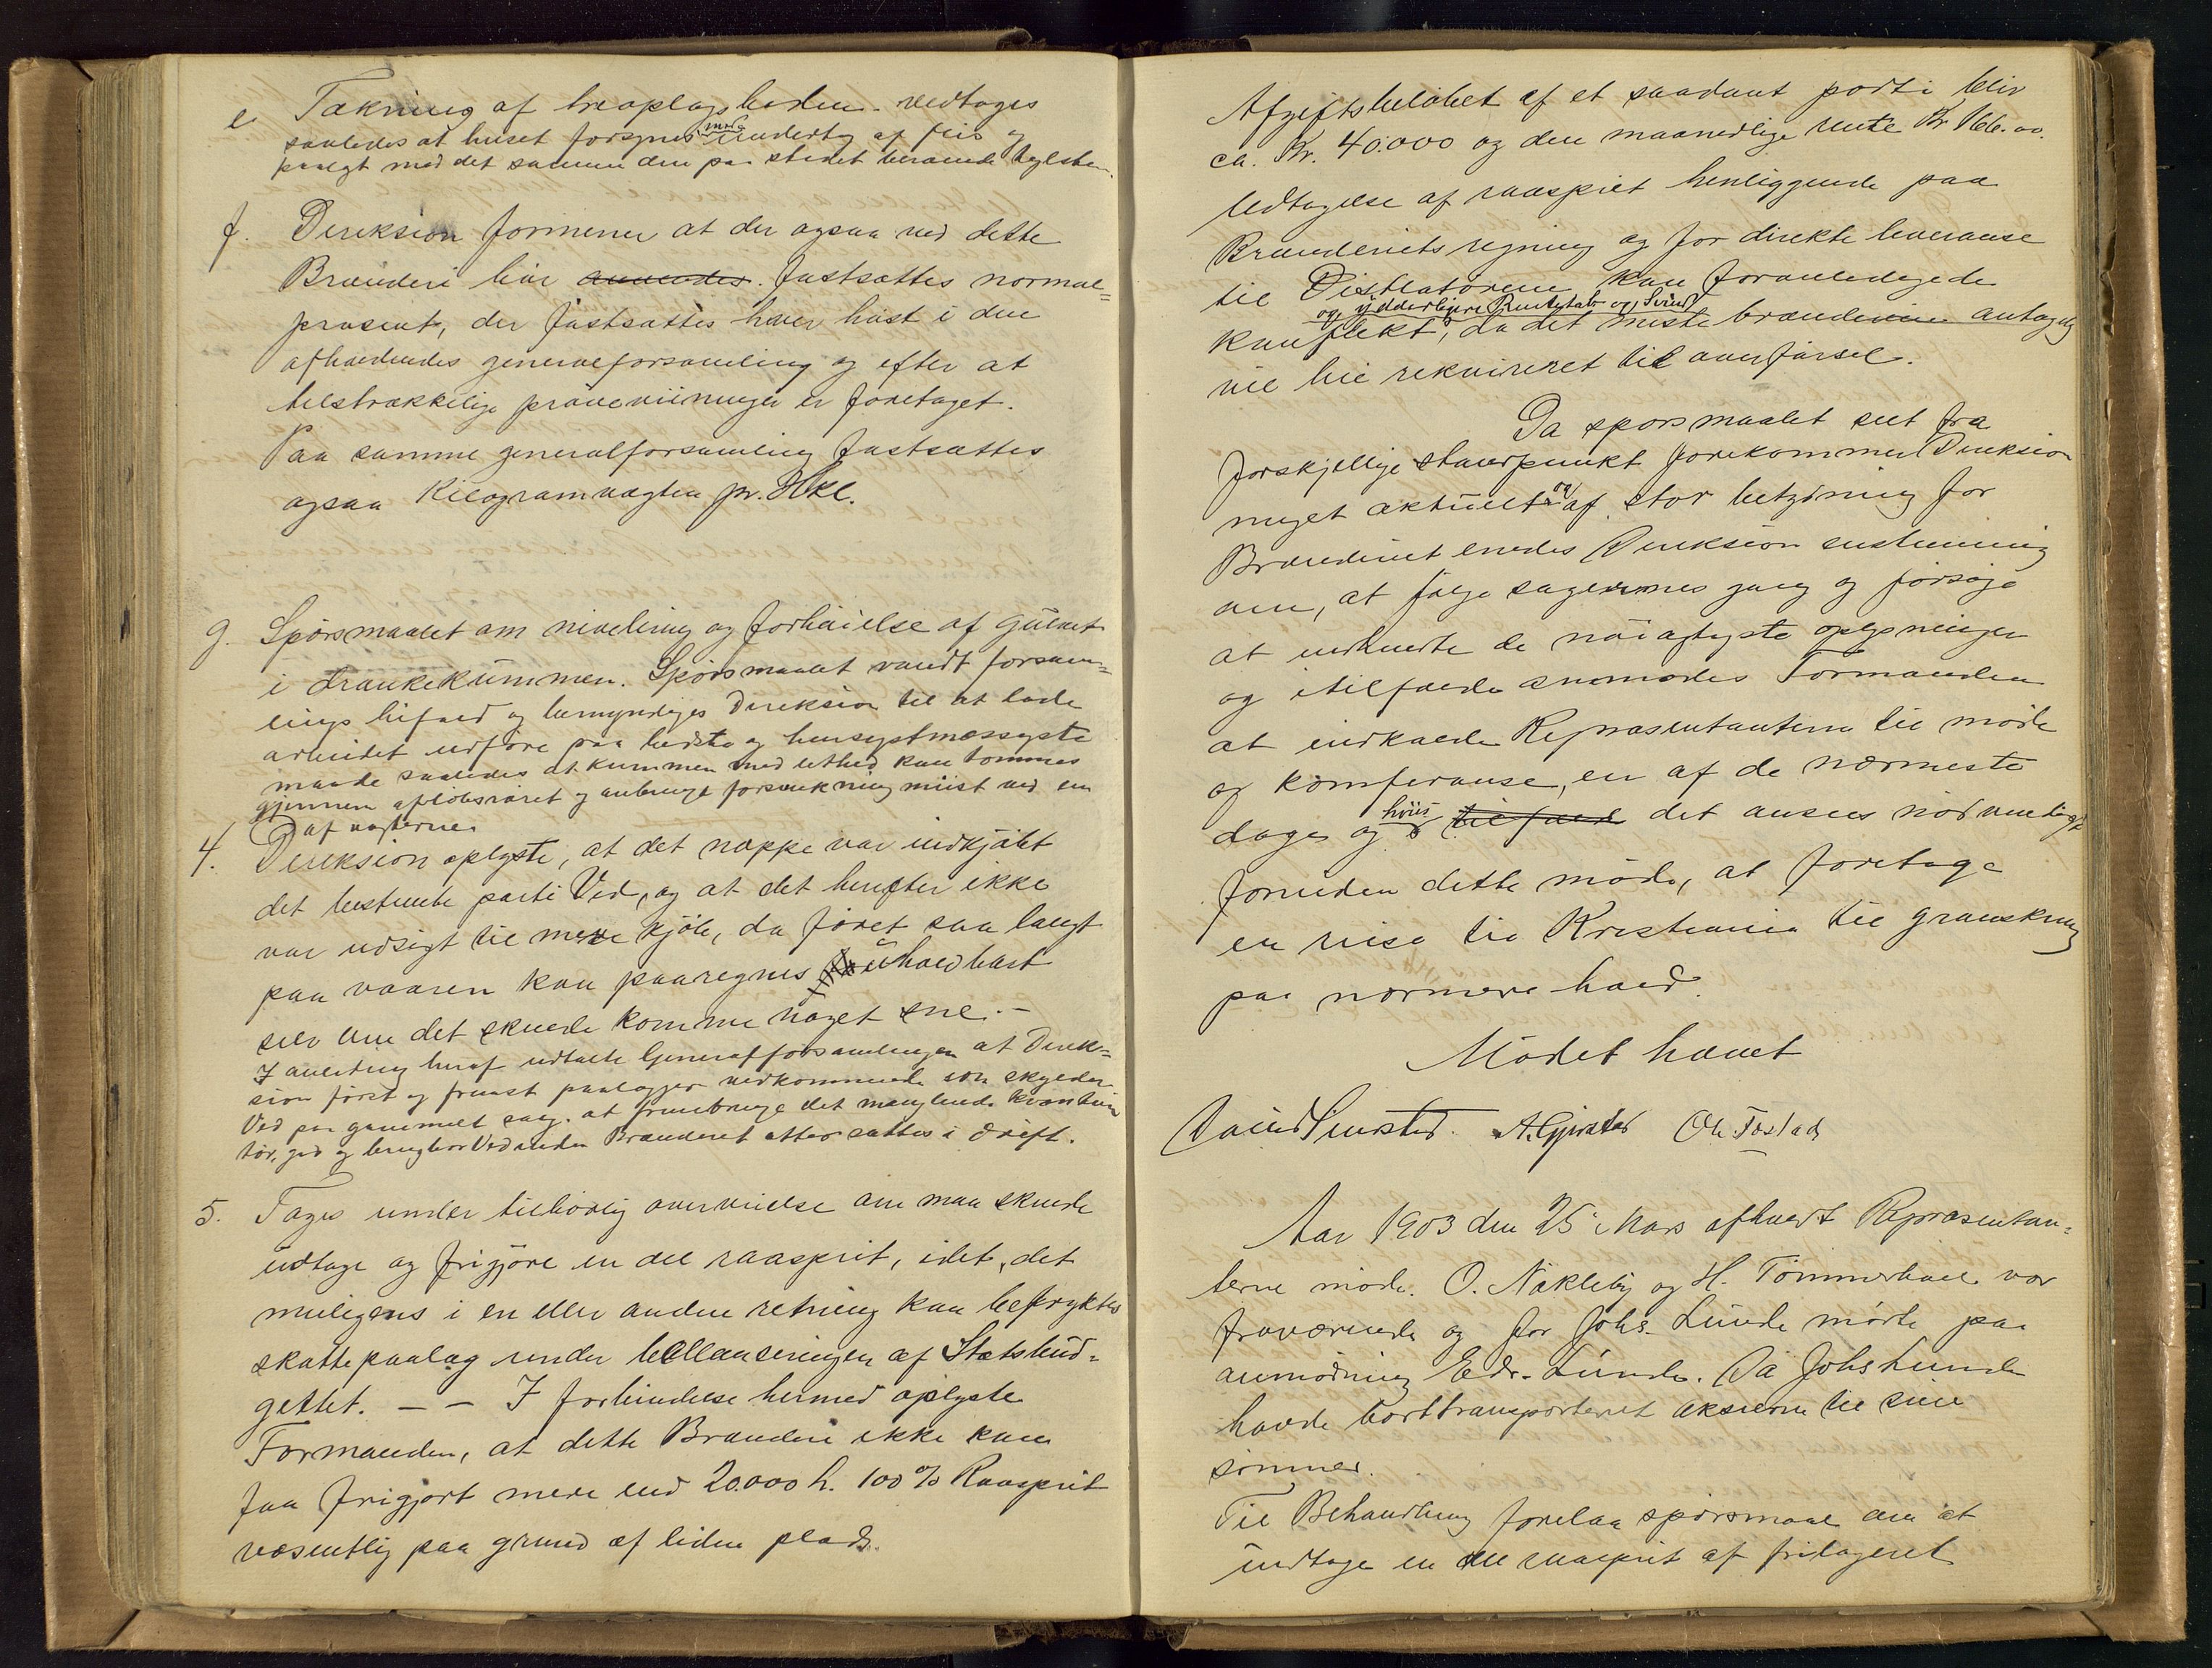 e. Tækning af træoplagsboden. vedtages
saaledes at huset forsynes med undertag af flis og
paalegt med det samme den paa stedet værende teglsten.
f. Direksion formener at der ogsaa ved dette
Brænderi bør anvendes. fastsættes normal=
prosent, der fastsættes hver høst i den
afholdendes generalforsamling og efter at
tilstrækkelige prøveviininger er foretaget.
Paa samme generalforsamling fastsættes
ogsaa Kilogramvægten pr. Hkl.
g. Spørsmaalet om nivelering og forhøielse af gulvet
i drankekummen. Spørsmaalet vandt forsam=
lings bifald og bemyndiges Direksion til at lade
arbeidet udføre paa bedste og hensigtmæssigste
maade saaledes at kummen med lethed kan tømmes
gjennem afløbsrøret og anbringe forsænkning midst ved en
af vægterne.
4. Direksion oplyste, at det neppe var indkjøbt
det bestemte parti Ved, og at det herefter ikke
var udsigt til mere kjøb, da føret saa langt
paa vaaren kan paaregnes uholdbart
selv om det skulde komme noget sne. —
I anledning heraf udtalte Generalforsamlingen at Direk=
sion først og fremst paalægger vedkommende som skylder
Ved paa gammelt salg. at frembringe det manglende kvantum
tør, god og brugbar Ved inden Brænderiet atter sættes i drift.
5. Tages under tilbørlig overveielse om man skulde
udtage og frigjøre en del raasprit, idet det
muligens i en eller anden retning kan befryktes
skattepaalæg under ballanseringen af Statsbud=
gettet. — — I forbindelse hermed oplyste
Formanden, at dette Brænderi ikke kan
faa frigjort mere end 20.000 L. 100 % Raasprit
væsentlig paa grund af liden plads.
Afgiftsbeløbet af et saadant parti blir
ca. Kr. 40.000 og den maanedlige rente Kr. 166.00.
Udtagelse af raasprit henliggende paa
Brænderiets regning og for direkte leveranse
til Distlatørene kan foranledigede
og ydderligere Rentetab og Svind
konflekt, da det meste brændevin antagelig
vil bli rekvireret til overførsel.
Da spørsmaalet set fra
forskjellige standpunkt forekommer Direksion
meget aktuelt og af stor betydning for
Brænderiet enedes Direksion enstemmig
om, at følge sagernes gang og forsøge
at indhente de nøiagtigste oplysninger
og itilfælde anmodes Formanden
at indkalde Repræsentanterne til møde
og komferanse, en af de nærmeste
dage og hvis tilfæld det ansees nødvendigt
foruden dette møde, at foretage
en reise til Kristiania til granskning
paa nærmere hold.
Mødet hævet
A. Gjestad Ole Fostad
Aar 1903 den 25 Mars afholdt Repræsentan=
terne møde. O. Nækleby og H. Tømmerhol var
fraværende og for Johs. Lunde mødte paa
anmodning Edv. Lunde. Da Johs Lunde
havde borttransporteret aksierne til sine
sønner.
Til Behandling forelaa spørsmaal om at
indtage en del raasprit af frilageret